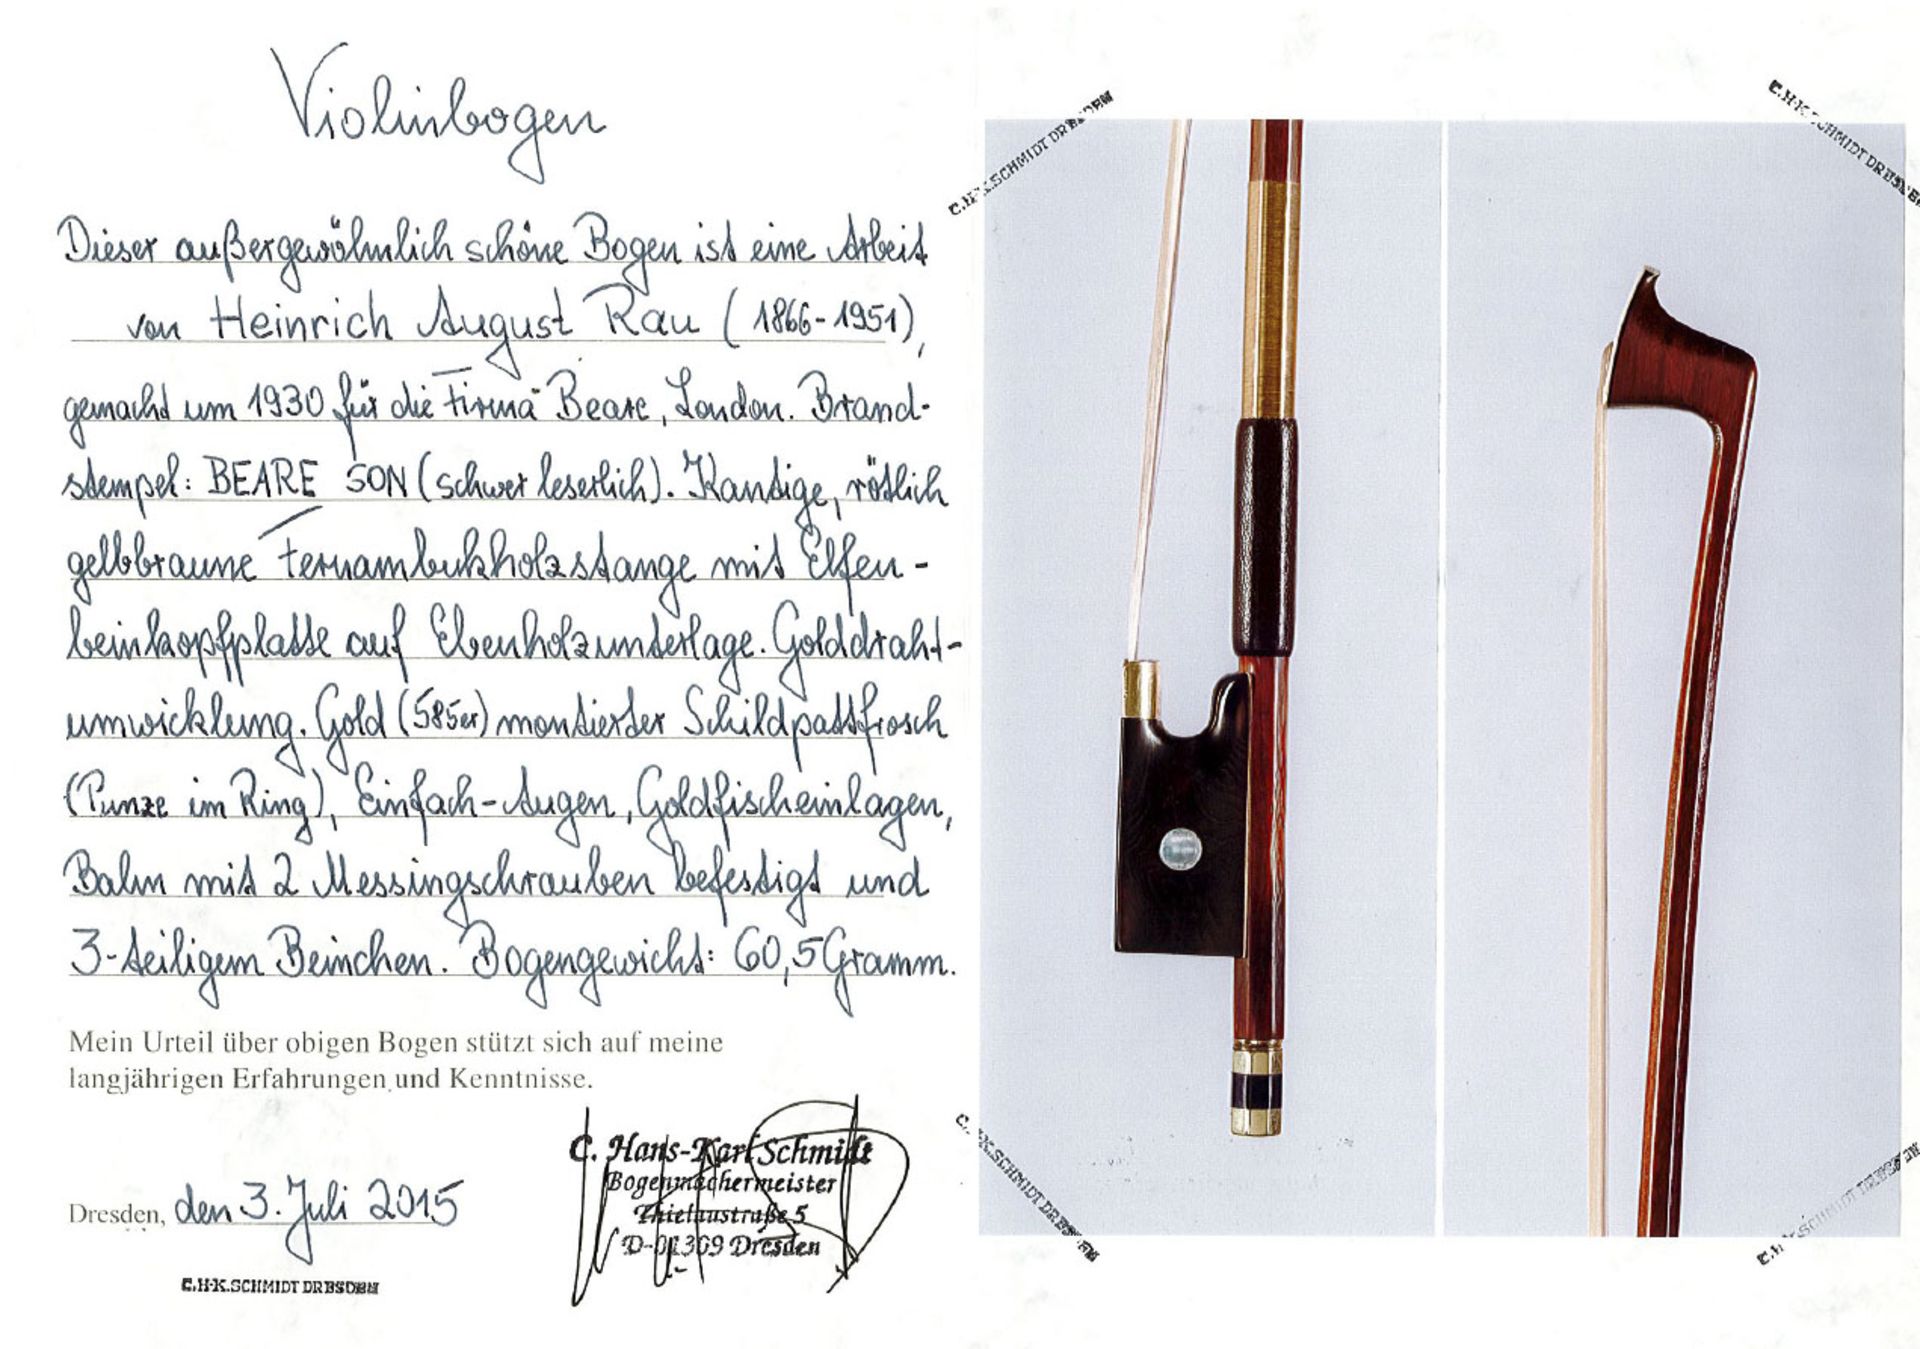 Violinbogen
Dieser außergewöhnlich schöne Bogen ist eine Arbeit
von Heinrich August Rau (1866-1951),
gemacht um 1930 für die Firma Beare, London. Brand-
stempel: BEARE SON (schwer leserlich). Kantige, rötlich
gelbbraune Fernambukholzstange mit Elfen-
beinkopfplatte auf Ebenholzunterlage. Golddraht-
umwicklung. Gold (585er) montierter Schildpattfrosch
(Punze im Ring), Einfach-Augen, Goldfischeinlagen,
Bahn mit 2 Messingschrauben befestigt und
3-teiligem Beinchen. Bogengewicht: 60,5 Gramm.
Mein Urteil über obigen Bogen stützt sich auf meine
langjährigen Erfahrungen und Kenntnisse.
Dresden, den 3. Juli 2015
C.H-K.SCHMIDT DRESDEN
C. Hans-Karl Schmidt
Bogenmachermeister
Thielaustraße 5
D-01309 Dresden
C.H-K.SCHMIDT DRESDEN
C.H-K.SCHMIDT DRESDEN
C.H-K.SCHMIDT DRESDEN
C.H-K.SCHMIDT DRESDEN